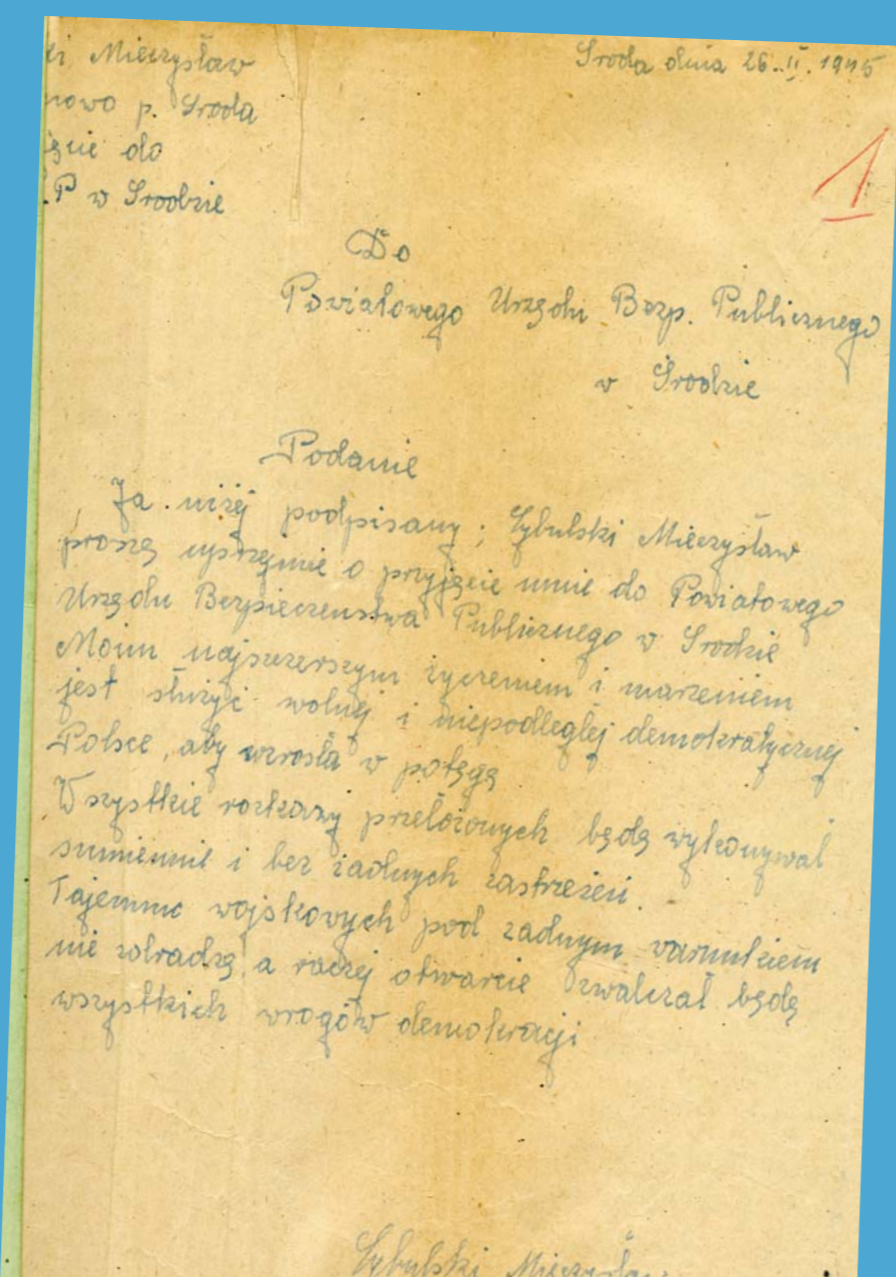 ki Mieczysław
nowo p. Środa
P w Środzie
Środa dnia 26. II. 1945
1
Do
Powiatowego Urzędu Bezp. Publicznego
w Środzie
Podanie
Ja niżej podpisany; Cybulski Mieczysław
proszę uprzejmie o przyjęcie mnie do Powiatowego
Urzędu Bezpieczenstwa Publicznego w Srodzie
Moim najszczerszym życzeniem i marzeniem
jest służyć wolnej i niepodległej demokratycznej
Polsce, aby wzrosła w potęgę
Wszystkie rozkazy przełożonych będę wykonywał
sumiennie i bez żadnych zastrzeżeń.
Tajemnic wojskowych pod żadnym warunkiem
nie zdradzę a raczej otwarcie zwalczał będę
wszystkich wrogów demokracji
Cybulski Mieczysław